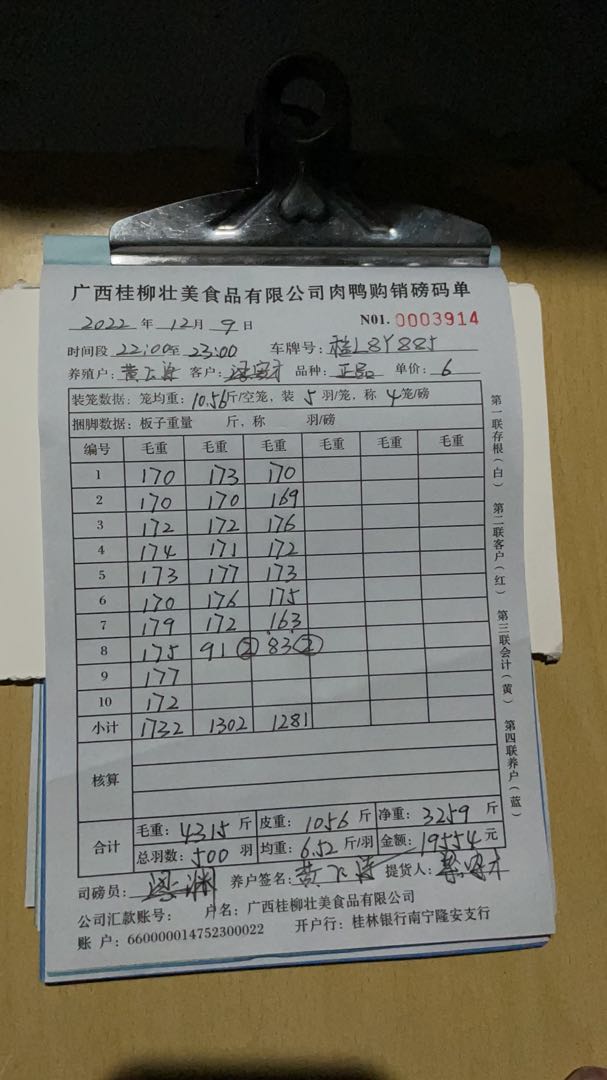 广西桂柳壮美食品有限公司肉鸭购销磅码单
2022 年 12 月 9 日 N01. 0003914
时间段 22:00 至 23:00 车牌号: 桂L8Y885
养殖户: 黄飞海 客户: 品种: 正品 单价: 6
装笼数据: 笼均重: 10.56 斤/空笼, 装 5 羽/笼, 称 4 笼/磅
捆脚数据: 板子重量 斤, 称 羽/磅
编号 毛重 毛重 毛重 毛重 毛重 毛重
1 170 173 170
2 170 170 169
3 172 172 176
4 174 171 172
5 173 177 173
6 170 176 175
7 179 172 163
8 175 91 ② 83 ②
9 177
10 172
小计 1732 1302 1281
核算
合计 毛重: 4315 斤 皮重: 1056 斤 净重: 3259 斤
总羽数: 500 羽 均重: 6.52 斤/羽 金额: 19554 元
司磅员: 养户签名: 黄飞海 提货人:
公司汇款账号: 户名: 广西桂柳壮美食品有限公司
账 户: 660000014752300022 开户行: 桂林银行南宁隆安支行
第一联存根(白) 第二联客户(红) 第三联会计(黄) 第四联养户(蓝)